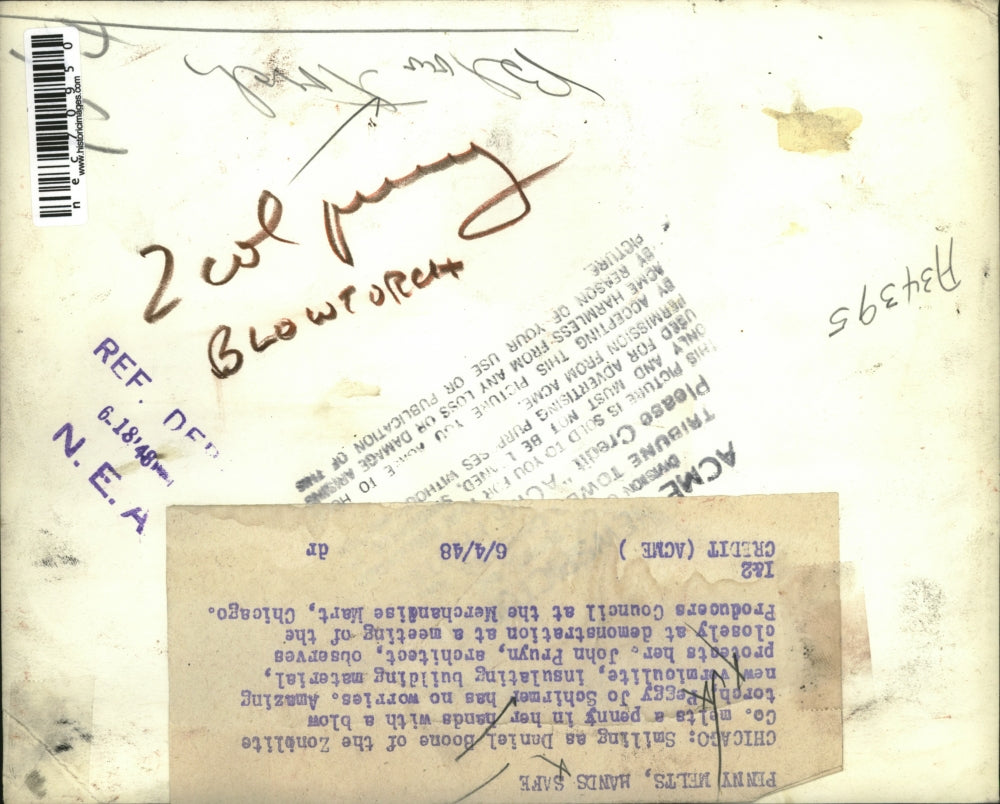 Blow Torch
www.historicimages.com
nec70950
2 col penny
BLOWTORCH
A34395
REF. DEP
6-18-48
N. E. A
ACME
DIVISION
TRIBUNE TOWE
Please Credit "AC
THIS PICTURE IS SOLD TO YOU FOR
ONLY AND MUST NOT BE
USED FOR ADVERTISING PURP SES WITHO
PERMISSION FROM ACME.
BY ACCEPTING THIS PICTURE YOU AGREE TO HO
ACME HARMLESS FROM ANY LOSS OR DAMAGE ARISING
BY REASON OF YOUR USE OR PUBLICATION OF THIS
PICTURE
PENNY MELTS, HANDS SAFE
CHICAGO: Smiling as Daniel Boone of the Zonolite
Co. melts a penny in her hands with a blow
torch, Peggy Jo Schirmer has no worries. Amazing
new vermiculite, insulating building material,
protects her. John Pruyn, architect, observes
closely at demonstration at a meeting of the
Producers Council at the Merchandise Mart, Chicago.
1&2
CREDIT (ACME ) 6/4/48 dr